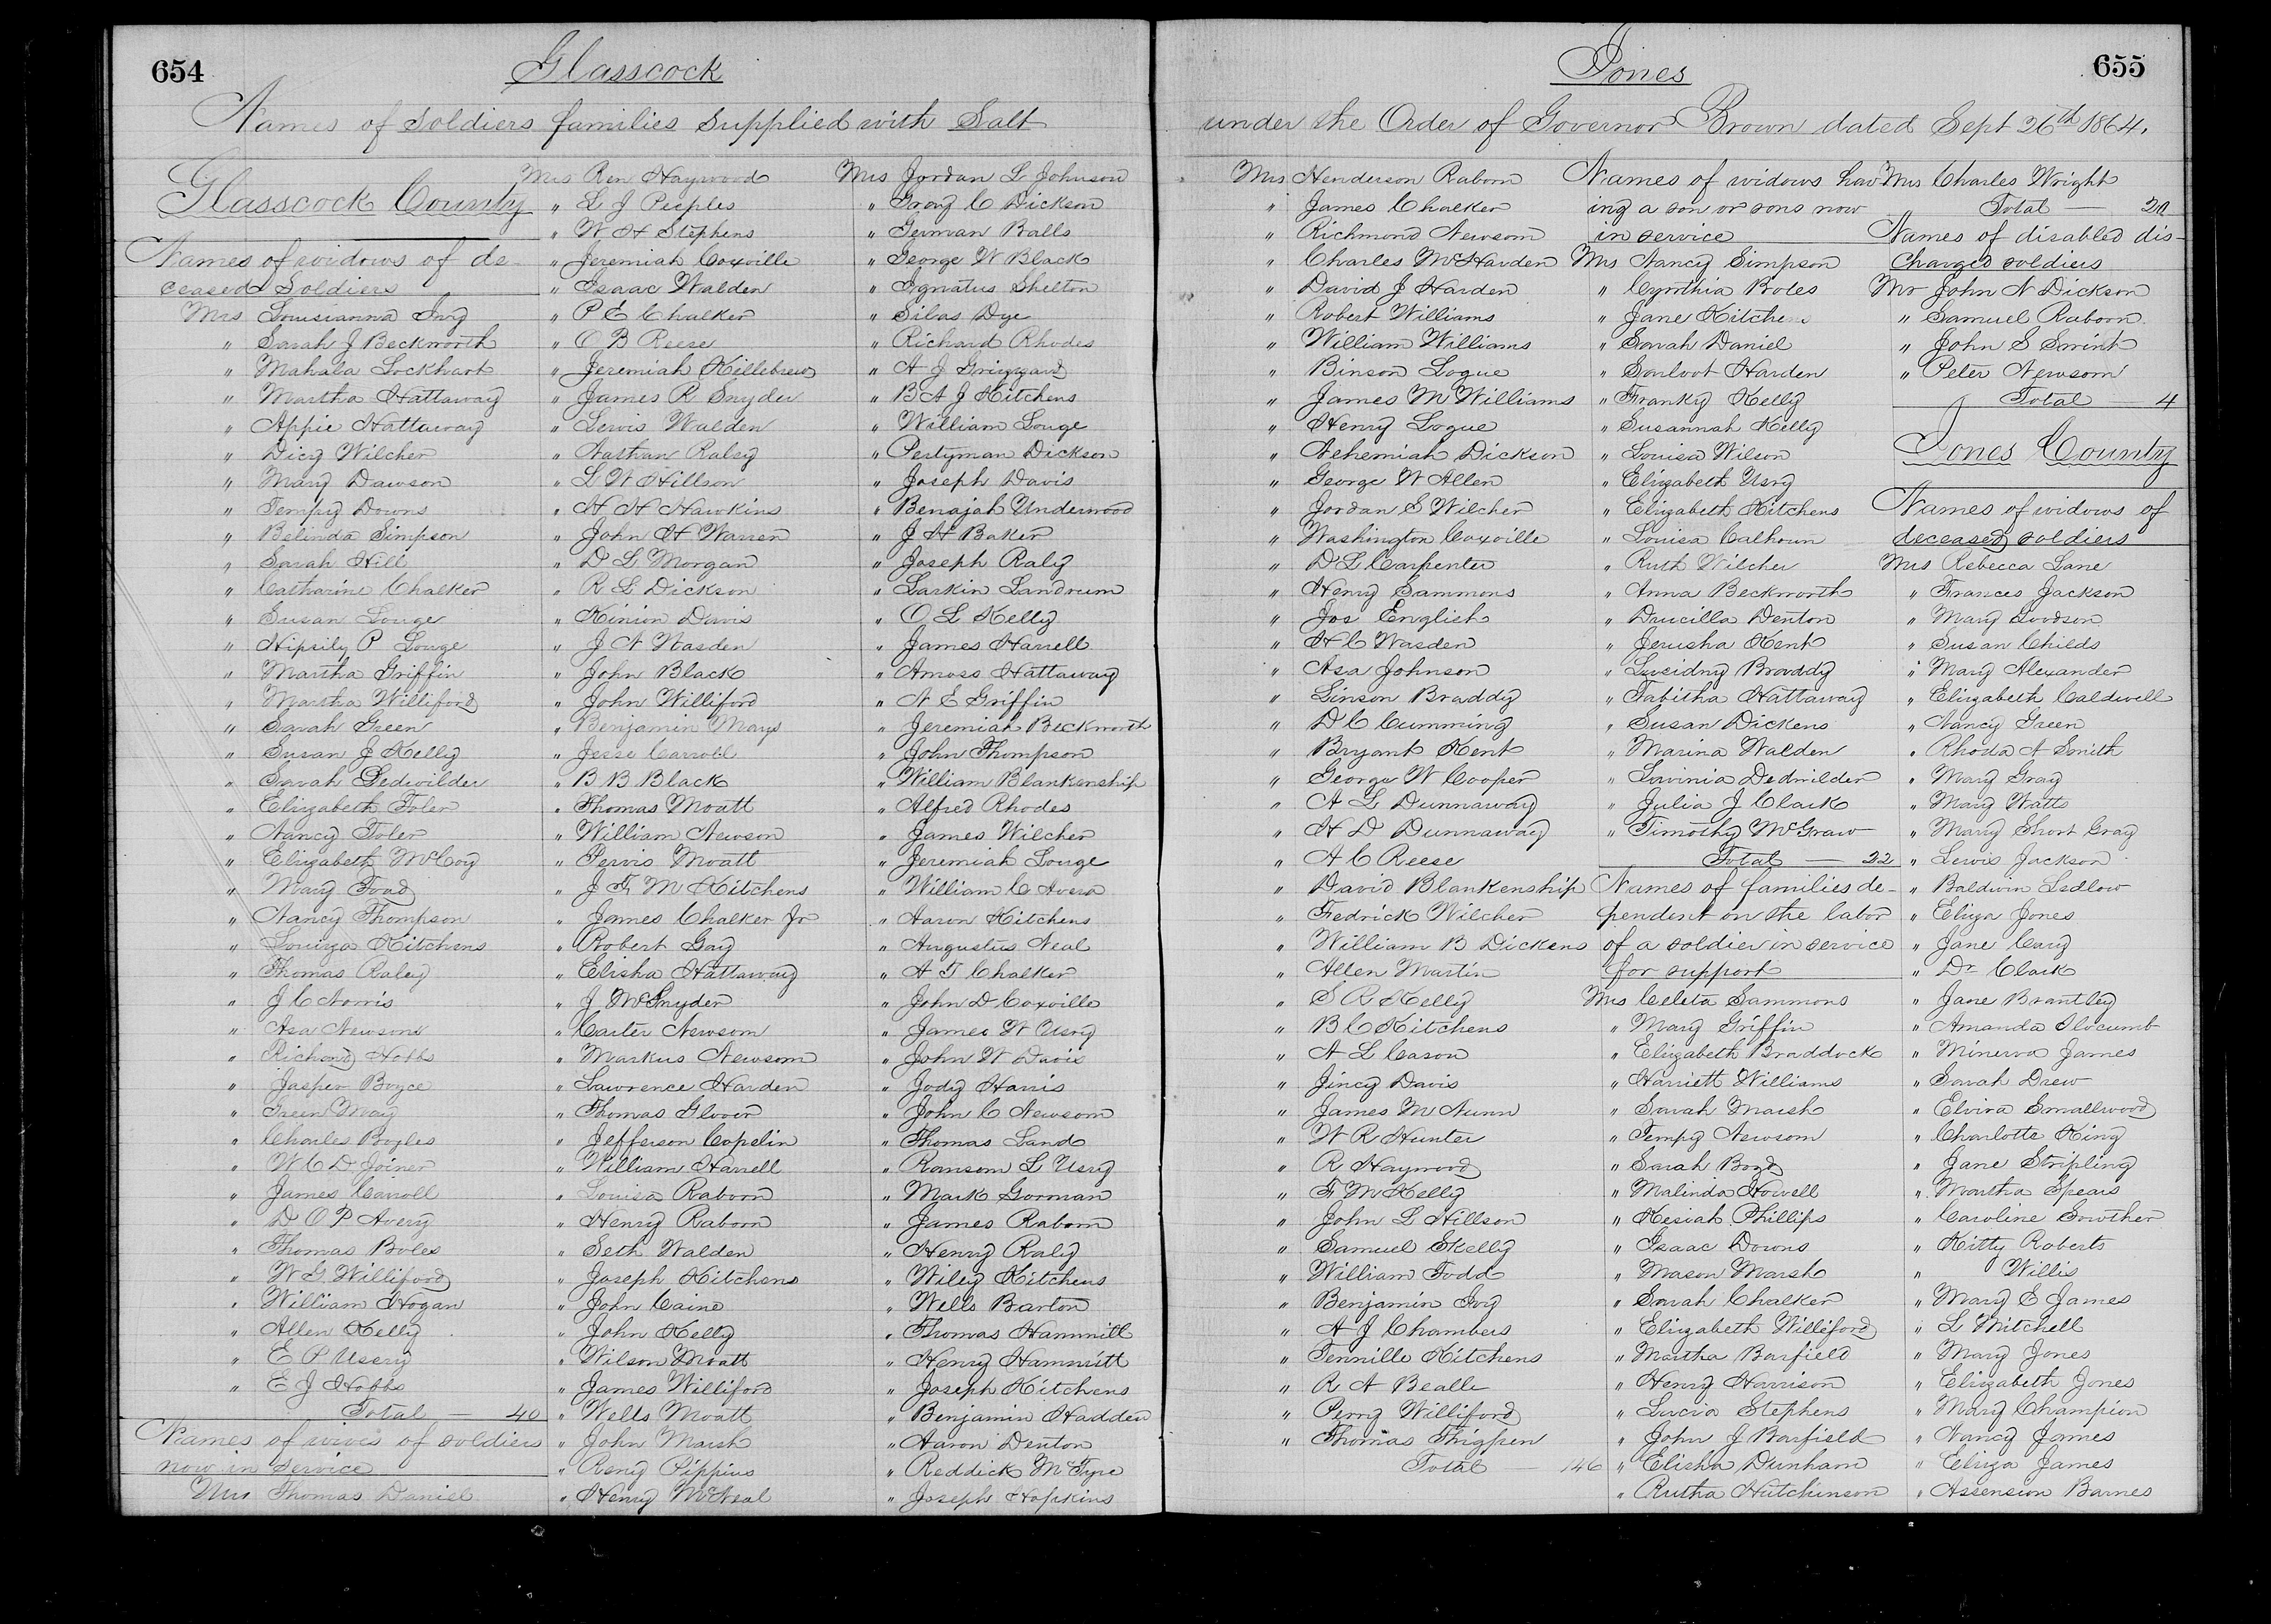 654
Glasscock
Names of soldiers families supplied with Salt
Glasscock County
Names of widows of de-
ceased Soldiers
Mrs Louisianna Ivy
" Sarah J Beckworth
" Mahala Lockhart
" Martha Hattaway
" Appie Hattaway
" Dicy Wilcher
" Mary Dawson
" Tempy Downs
" Belinda Simpson
" Sarah Hill
" Catharine Chalker
" Susan Louge
" Hipsily P Louge
" Martha Griffin
" Martha Williford
" Sarah Green
" Susan J Kelly
" Sarah Dedwilder
" Elizabeth Toler
" Nancy Toler
" Elizabeth McCoy
" Mary Toad
" Nancy Thompson
" Louiza Kitchens
" Thomas Raley
" J C Norris
" Asa Newsom
" Richard Hobbs
" Jasper Boyce
" Green May
" Charles Boyles
" W C D Joiner
" James Carroll
" D O P Avery
" Thomas Boles
" W G Williford
" William Hogan
" Allen Kelly
" E P Usery
" E J Hobbs
Total — 40
Names of wives of soldiers
now in service
Mrs Thomas Daniel
Mrs Ren Haywood
" L J Peeples
" W H Stephens
" Jeremiah Coxville
" Isaac Walden
" P E Chalker
" O B Reese
" Jeremiah Killebrew
" James R Snyder
" Lewis Walden
" Nathan Raley
" L W Hillson
" H H Hawkins
" John H Warren
" D L Morgan
" R L Dickson
" Kinion Davis
" J N Wasden
" John Black
" John Williford
" Benjamin Mays
" Jesse Carroll
" B B Black
" Thomas Moatt
" William Newson
" Pervis Moatt
" J F M Kitchens
" James Chalker Jr
" Robert Gay
" Elisha Hattaway
" J McSnyder
" Carter Newsom
" Markus Newsom
" Lawrence Harden
" Thomas Glover
" Jefferson Copelin
" William Harrell
" Louisa Raborn
" Henry Raborn
" Seth Walden
" Joseph Kitchens
" John Caine
" John Kelly
" Wilson Moatt
" James Williford
" Wells Moatt
" John Marsh
" Reny Pippins
" Henry McNeal
Mrs Jordan L Johnson
" Gray C Dickson
" German Balls
" George W Black
" Ignatus Shelton
" Silas Dye
" Richard Rhodes
" A J Grizzard
" B A J Kitchens
" William Louge
" Pertyman Dickson
" Joseph Davis
" Benajah Underwood
" J H Baker
" Joseph Raly
" Larkin Landrum
" O L Kelly
" James Harrell
" Amoss Hattaway
" N E Griffin
" Jeremiah Beckworth
" John Thompson
" William Blankenship
" Alfred Rhodes
" James Wilcher
" Jeremiah Louge
" William C Avera
" Aaron Kitchens
" Augustus Neal
" A T Chalker
" John D Coxville
" James W Usry
" John W Davis
" Jody Harris
" John C Newsom
" Thomas Land
" Ransom L Usry
" Mark Gorman
" James Raborn
" Henry Raly
" Wiley Kitchens
" Wells Barton
" Thomas Hammitt
" Henry Hammitt
" Joseph Kitchens
" Benjamin Hadden
" Aaron Denton
" Reddick McTyre
" Joseph Hopkins
655
Jones
under the Order of Governor Brown dated Sept 26th 1864.
Mrs Henderson Raborn
" James Chalker
" Richmond Newsom
" Charles McHarden
" David J Harden
" Robert Williams
" William Williams
" Binson Logue
" James M Williams
" Henry Logue
" Nehemiah Dickson
" George W Allen
" Jordan S Wilcher
" Washington Coxville
" D L Carpenter
" Henry Sammons
" Jos English
" H C Wasden
" Asa Johnson
" Linson Braddy
" D C Cumming
" Bryant Kent
" George W Cooper
" A L Dunnaway
" H D Dunnaway
" A C Reese
" David Blankenship
" Fedrick Wilcher
" William B Dickens
" Allen Martin
" S R Kelly
" B C Kitchens
" A L Cason
" Jincy Davis
" James M Nunn
" W R Hunter
" R Haywood
" F M Kelly
" John L Hillson
" Samuel Skelly
" William Todd
" Benjamin Ivy
" A J Chambers
" Tennille Kitchens
" R A Bealle
" Perry Williford
" Thomas Thigpen
Total — 146
Names of widows hav
ing a son or sons now
in service
Mrs Nancy Simpson
" Cynthia Boles
" Jane Kitchens
" Sarah Daniel
" Harden
" Franky Kelly
" Susannah Kelly
" Louisa Wilson
" Elizabeth Usry
" Elizabeth Kitchens
" Louisa Calhoun
" Ruth Wilcher
" Anna Beckworth
" Drucilla Denton
" Jerusha Kent
" Lucidny Braddy
" Tabitha Hattaway
" Susan Dickens
" Marina Walden
" Lavinia Dedwilder
" Julia J Clark
" Timothy McGraw
Total — 22
Names of families de-
pendent on the labor
of a soldier in service
for support
Mrs Celeta Sammons
" Mary Griffin
" Elizabeth Braddock
" Harriett Williams
" Sarah Marsh
" Tempy Newsom
" Sarah Boyd
" Malinda Howell
" Kesiah Phillips
" Isaac Downs
" Mason Marsh
" Sarah Chalker
" Elizabeth Williford
" Martha Barfield
" Henry Harrison
" Lucia Stephens
" John J Barfield
" Elisha Dunham
" Rutha Hutchinson
Mrs Charles Wright
Total — 20
Names of disabled dis-
charged soldiers
Mr John N Dickson
" Samuel Raborn
" John S Swint
" Peter Newsom
Total — 4
Jones County
Names of widows of
deceased soldiers
Mrs Rebecca Lane
" Frances Jackson
" Mary Goodson
" Susan Childs
" Mary Alexander
" Elizabeth Caldwell
" Nancy Green
" Rhoda A Smith
" Mary Gray
" Mary Watts
" Mary Short Gray
" Lewis Jackson
" Baldwin Ledlow
" Eliza Jones
" Jane Cary
" Dr Clark
" Jane Brantley
" Amanda Slocumb
" Minerva James
" Sarah Drew
" Elvira Smallwood
" Charlotte King
" Jane Stripling
" Martha Spears
" Caroline Sowther
" Kitty Roberts
" Willis
" Mary E James
" L Mitchell
" Mary Jones
" Elizabeth Jones
" Mary Champion
" Nancy James
" Eliza James
" Assension Barnes